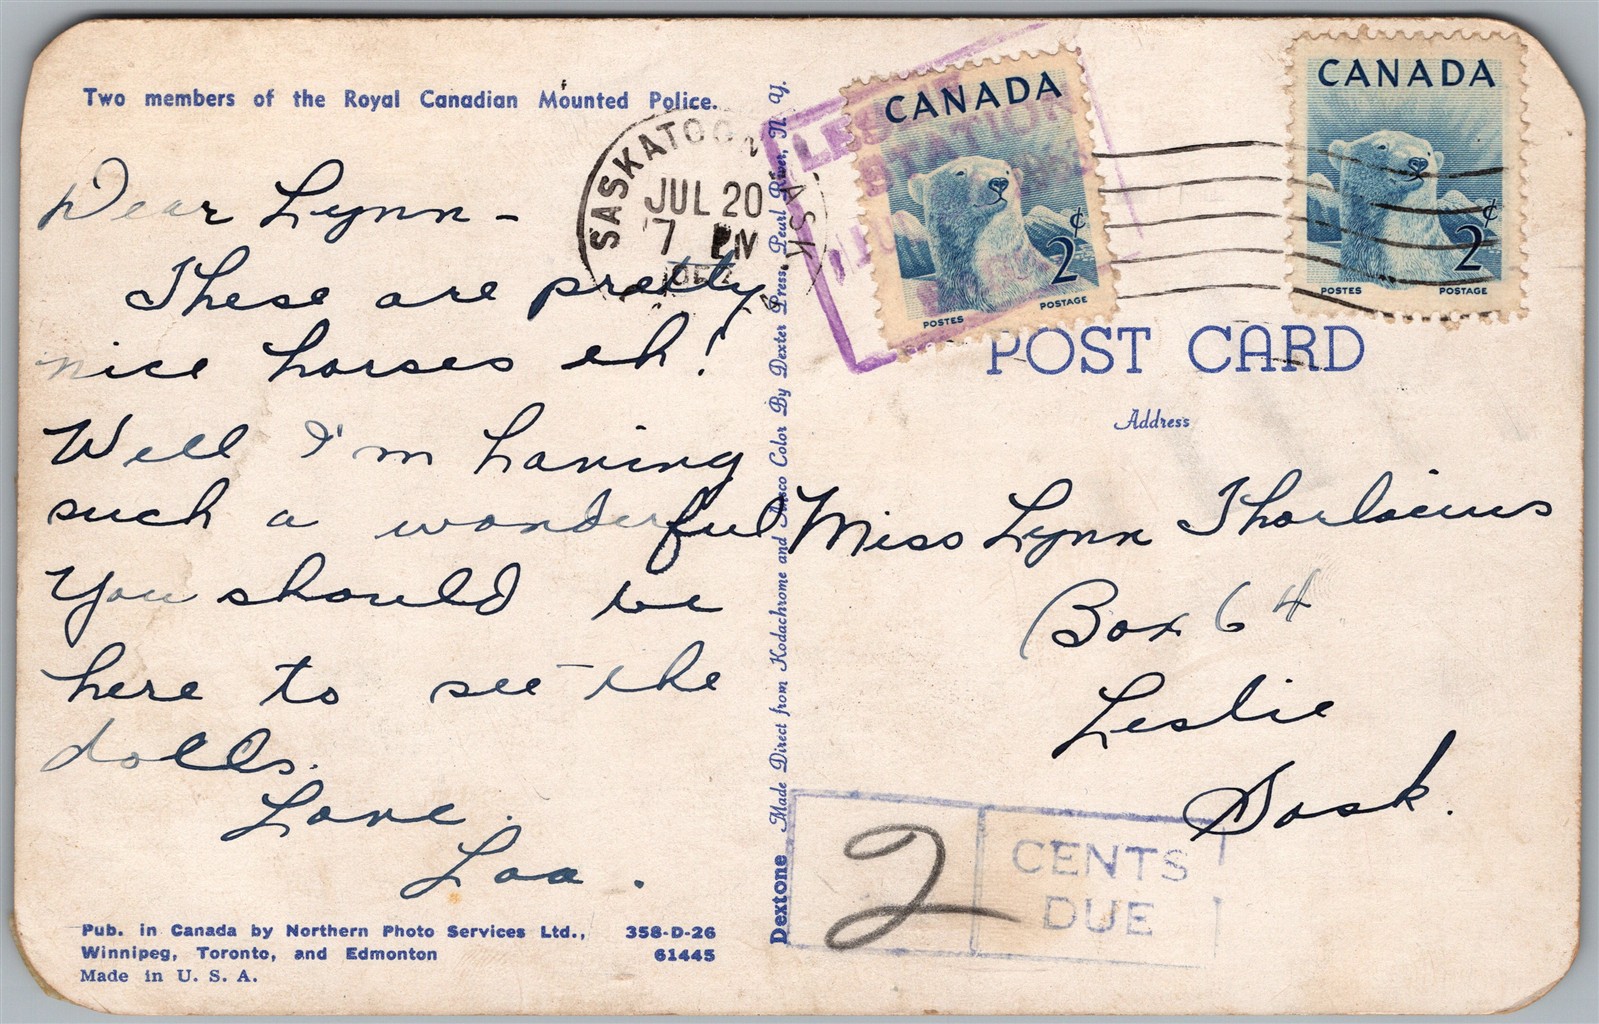 Two members of the Royal Canadian Mounted Police.
Dear Lynn -
These are pretty
nice horses eh!
Well I'm having
such a wonderful
You should be
here to see the
dolls.
Love.
Loa.
Pub. in Canada by Northern Photo Services Ltd., 358-D-26
Winnipeg, Toronto, and Edmonton 61445
Made in U. S. A.
Dextone Made Direct from Kodachrome and Ansco Color By Dexter Press, Pearl River, N. Y.
SASKATOON SASK
JUL 20
7 PM
CANADA
2¢
POSTES POSTAGE
CANADA
2¢
POSTES POSTAGE
STATION
POST CARD
Address
Miss Lynn Thorlacius
Box 64
Leslie
Sask.
2 CENTS
DUE